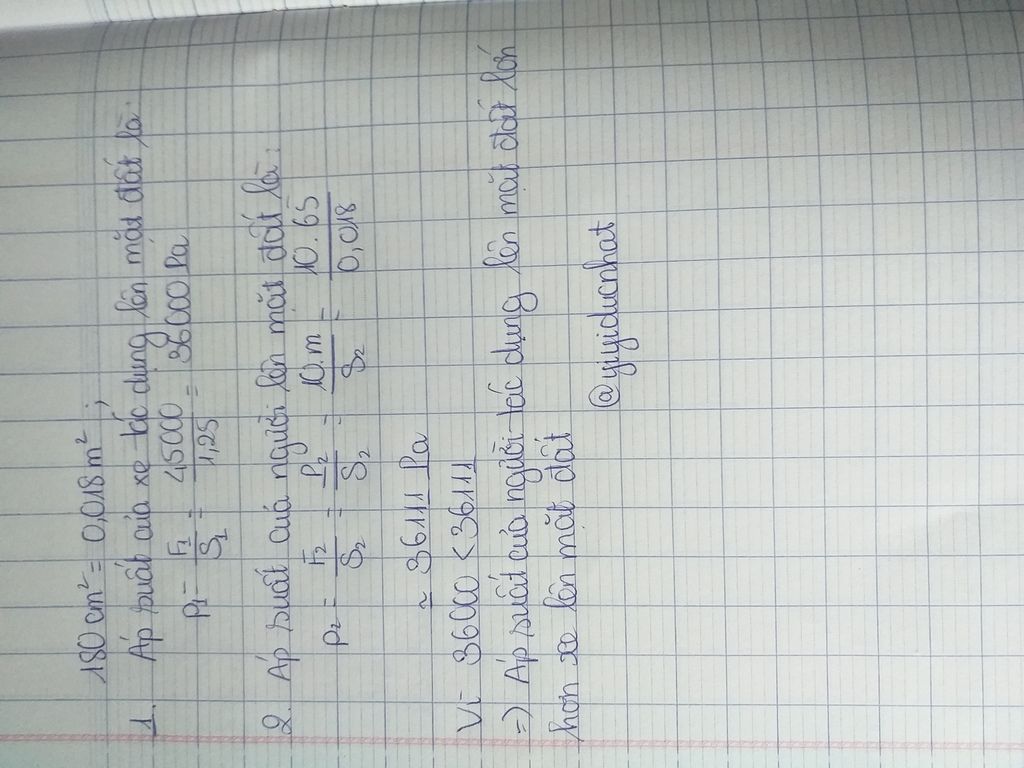 180 cm² = 0,018 m² ;
1. Áp suất của xe tác dụng lên mặt đất là:
p₁ = F₁/S₁ = 45000/1,25 = 36000 Pa
2. Áp suất của người lên mặt đất là:
p₂ = F₂/S₂ = P₂/S₂ = 10.m/S₂ = 10.65/0,018
≃ 36111 Pa
Vì 36000 < 36111
=) Áp suất của người tác dụng lên mặt đất lớn
hơn xe lên mặt đất
@yyiducnhat